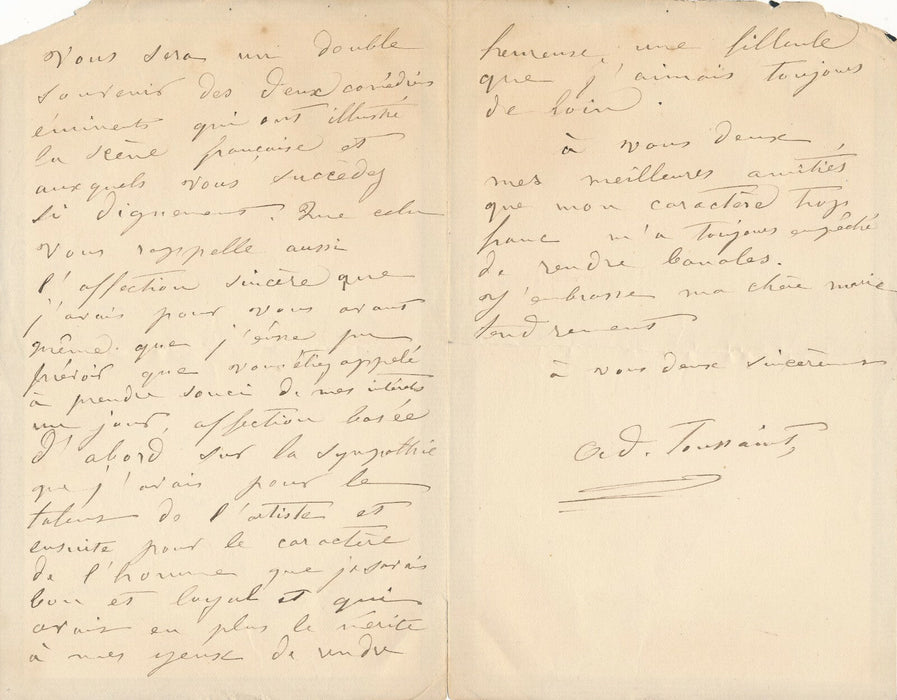 Vous sera un double
souvenir des deux comédiens
éminents qui ont illustré
la scène française et
auxquels vous succédez
si dignement. Que cela
vous rappelle aussi
l'affection sincère que
j'avais pour vous avant
même que j'eusse pu
prévoir que vous étiez appelé
à prendre souci de mes intérêts
un jour, affection basée
d'abord sur la sympathie
que j'avais pour le
talent de l'artiste et
ensuite pour le caractère
de l'homme que je savais
bon et loyal et qui
avait en plus le mérite
à mes yeux de rendre
heureuse, une filleule
que j'aimais toujours
de loin.
à vous deux
mes meilleures amitiés
que mon caractère trop
franc m'a toujours empêché
de rendre banales.
J'embrasse ma chère marie
tendrement
à vous deux sincèrement
Ad. Toussaint